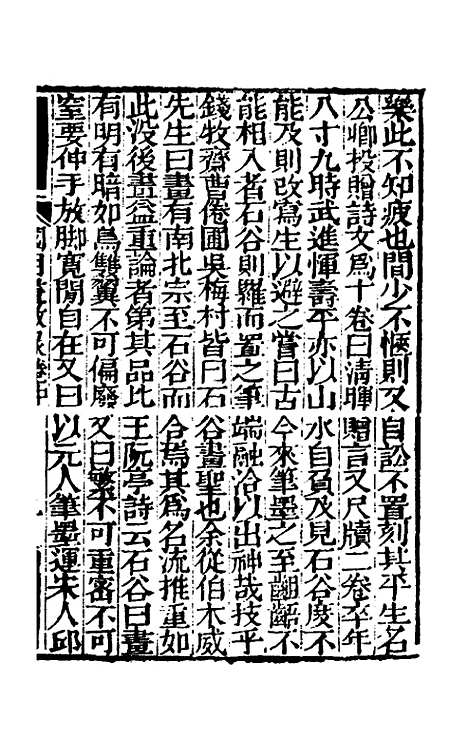 樂此不知疲也間少不愜則又自訟不置刻其平生名
公卿投贈詩文爲十卷曰清暉贈言又尺牘二卷卒年
八十九時武進惲壽平亦以山水自負及見石谷度不
能及則改寫生以避之嘗曰古今來筆墨之至齟齬不
能相入者石谷則羅而置之筆端融洽以出神哉技乎
錢牧齋曹倦圃吳梅村皆曰石谷畫聖也余從伯木威
先生曰畫有南北宗至石谷而合焉其爲名流推重如
此没後畫益重論者第其品比王阮亭詩云石谷曰畫
有明有暗如鳥雙翼不可偏廢又曰繁不可重密不可
窒要伸手放脚寬閒自在又曰以元人筆墨運宋人邱
國朝畫徵録卷中